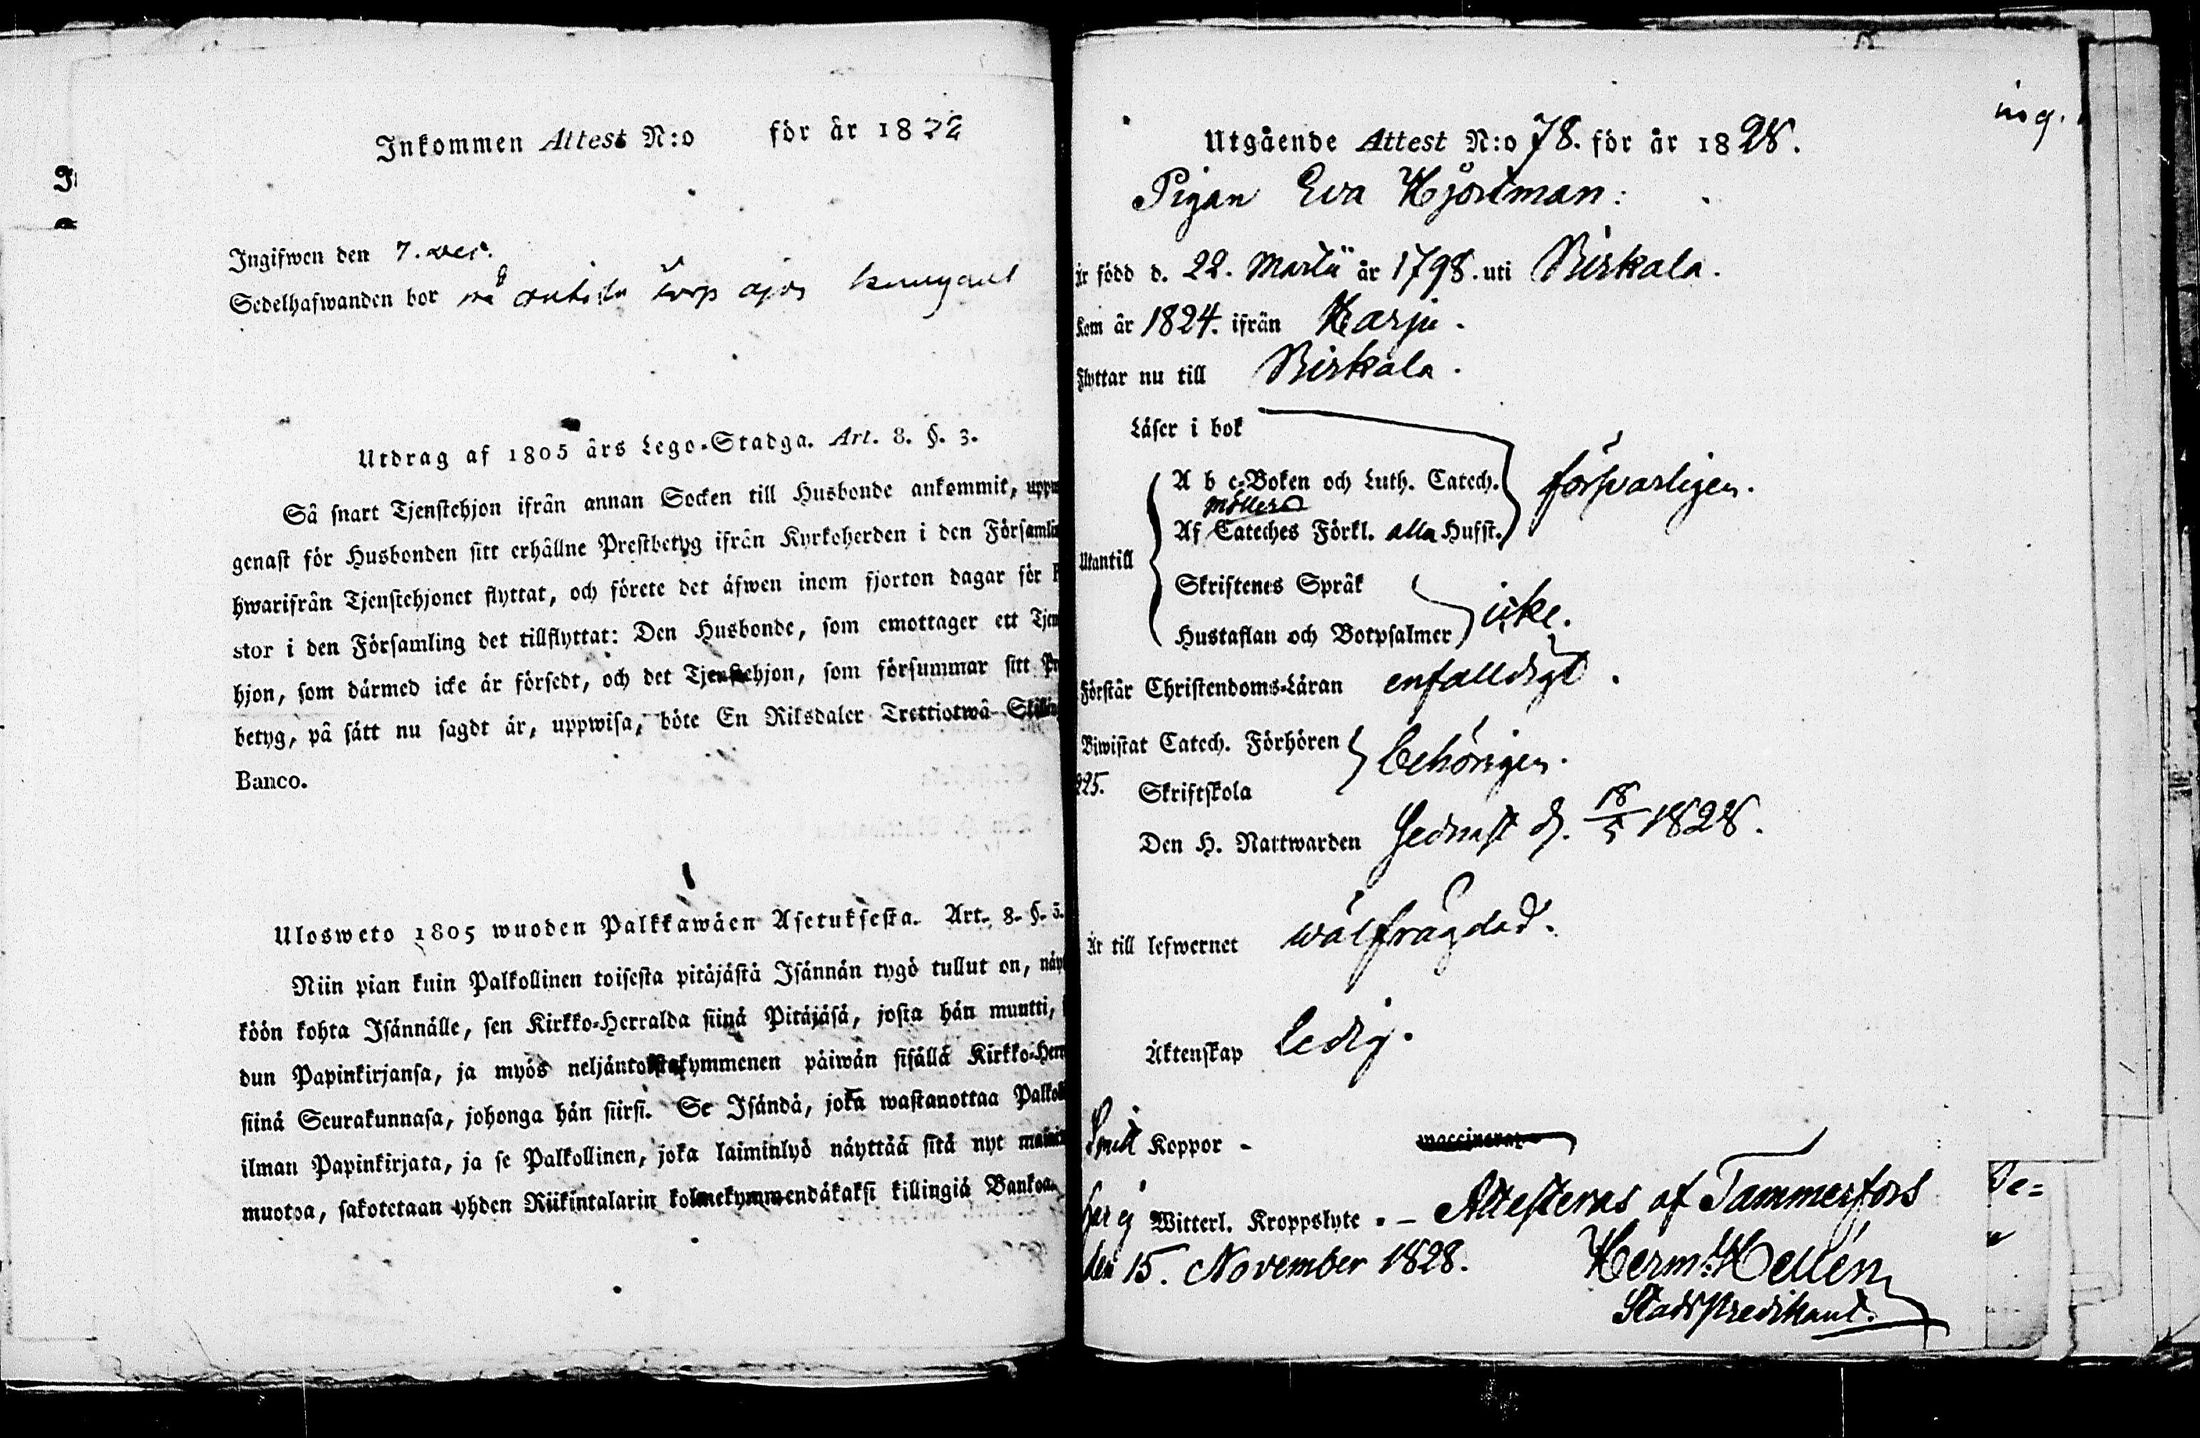 Inkommen Attest N:o för år 18
Ingifwen den 7. dec.
Sedelhafwanden bor på torp
Utdrag af 1805 års Lego-Stadga. Art. 8. §. 3.
Så snart Tjenstehjon ifrån annan Socken till Husbonde ankommit, uppw
genast för Husbonden sitt erhållne Prestbetyg ifrån Kyrkoherden i den Församlin
hwarifrån Tjenstehjonet flyttat, och förete det äfwen inom fjorton dagar för
stor i den Församling det tillflyttat: Den Husbonde, som emottager ett Tjen
hjon, som därmed icke är försedt, och det Tjenstehjon, som försummar sitt Pr
betyg, på sätt nu sagdt är, uppwisa, böte En Riksdaler Trettiotwå Skillin
Banco.
Ulosweto 1805 wuoden Palkkawäen Asetuksesta. Art. 8. §. 3.
Niin pian kuin Palkollinen toisesta pitäjästä Isännän tygö tullut on, näyt
köön kohta Isännälle, sen Kirkko-Herralda siinä Pitäjäsä, josta hän muutti, s
dun Papinkirjansa, ja myös neljäntoistakymmenen päiwän sisällä Kirkko-Herr
siinä Seurakunnasa, johonga hän siirsi. Se Isändä, joka wastanottaa Palkol
ilman Papinkirjata, ja se Palkollinen, joka laiminlyö näyttää sitä nyt mainit
muotoa, sakotetaan yhden Riikintalarin kolmekymmendäkaksi killingiä Bankoa.
Utgående Attest N:o 78. för år 1828.
Pigan Eva Hjortman.
är född d. 22. Martii år 1798. uti Birkala.
Kom år 1824. ifrån Harju.
Flyttar nu till Birkala.
Läser i bok
A b c-Boken och Luth. Catech. försvarligen.
Möllers
Af Cateches Förkl. alla Hufst.
Utantill
Skriftenes Språk
Hustaflan och Botpsalmer icke.
Förstår Christendoms-Läran enfalldigt.
Biwistat Catech. Förhören behörigen.
225. Skriftskola
Den H. Nattwarden sednast d. 18/5 1828.
Är till lefwernet wälfrägdad.
Äktenskap Ledig.
Koppor - waccinerad
har ej Witterl. Kroppslyte. - Attesteras af Tammerfors
den 15. November 1828. Herm: Hellén
Stads prædikant.